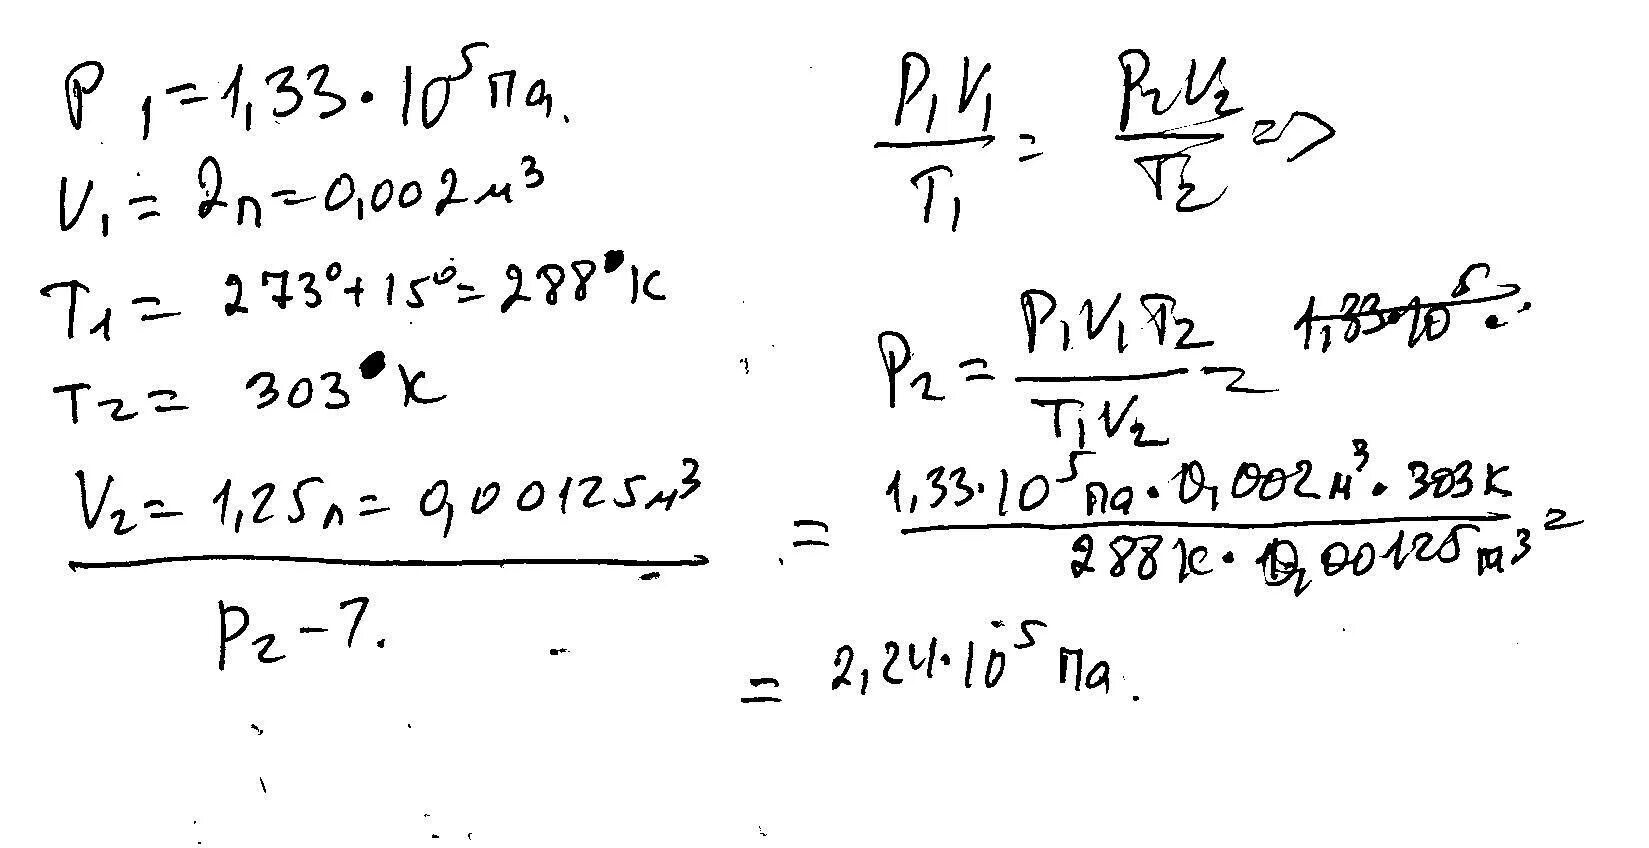 P₁ = 1,33 · 10⁵ Па.
V₁ = 2л = 0,002 м³
T₁ = 273° + 15° = 288° К
T₂ = 303° К
V₂ = 1,25л = 0,00125 м³
P₂ – ?.
P₁V₁ / T₁ = P₂V₂ / T₂ =>
P₂ = P₁V₁T₂ / T₁V₂ = 1,33·10⁵ ·
= 1,33·10⁵ Па · 0,002 м³ · 303 К / 288 К · 0,00125 м³ =
= 2,24·10⁵ Па.